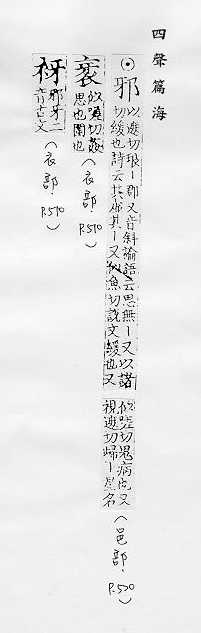 四聲篇海
⊙邪以遮切琅一郡又音斜論語云思無一又以諸
切緩也詩云其虛其一又似魚切說文緩也又
似嗟切鬼病也又
視遮切歸一星名
(邑部.P.500)
衺似嗟切
思也圍也
(衣部.P.510)
衶邪牙二
音古文
(衣部.P.510)